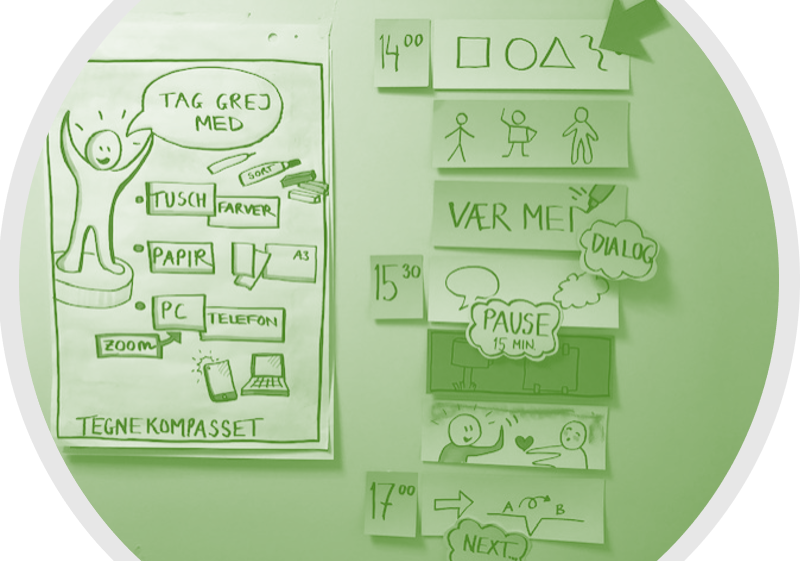 TAG GREJ
MED
SORT
TUSCH
FARVER
PAPIR
A3
PC
TELEFON
ZOOM
TEGNEKOMPASSET
14 00
VÆR MED
DIALOG
15 30
PAUSE
15 MIN.
17 00
A B
NEXT...